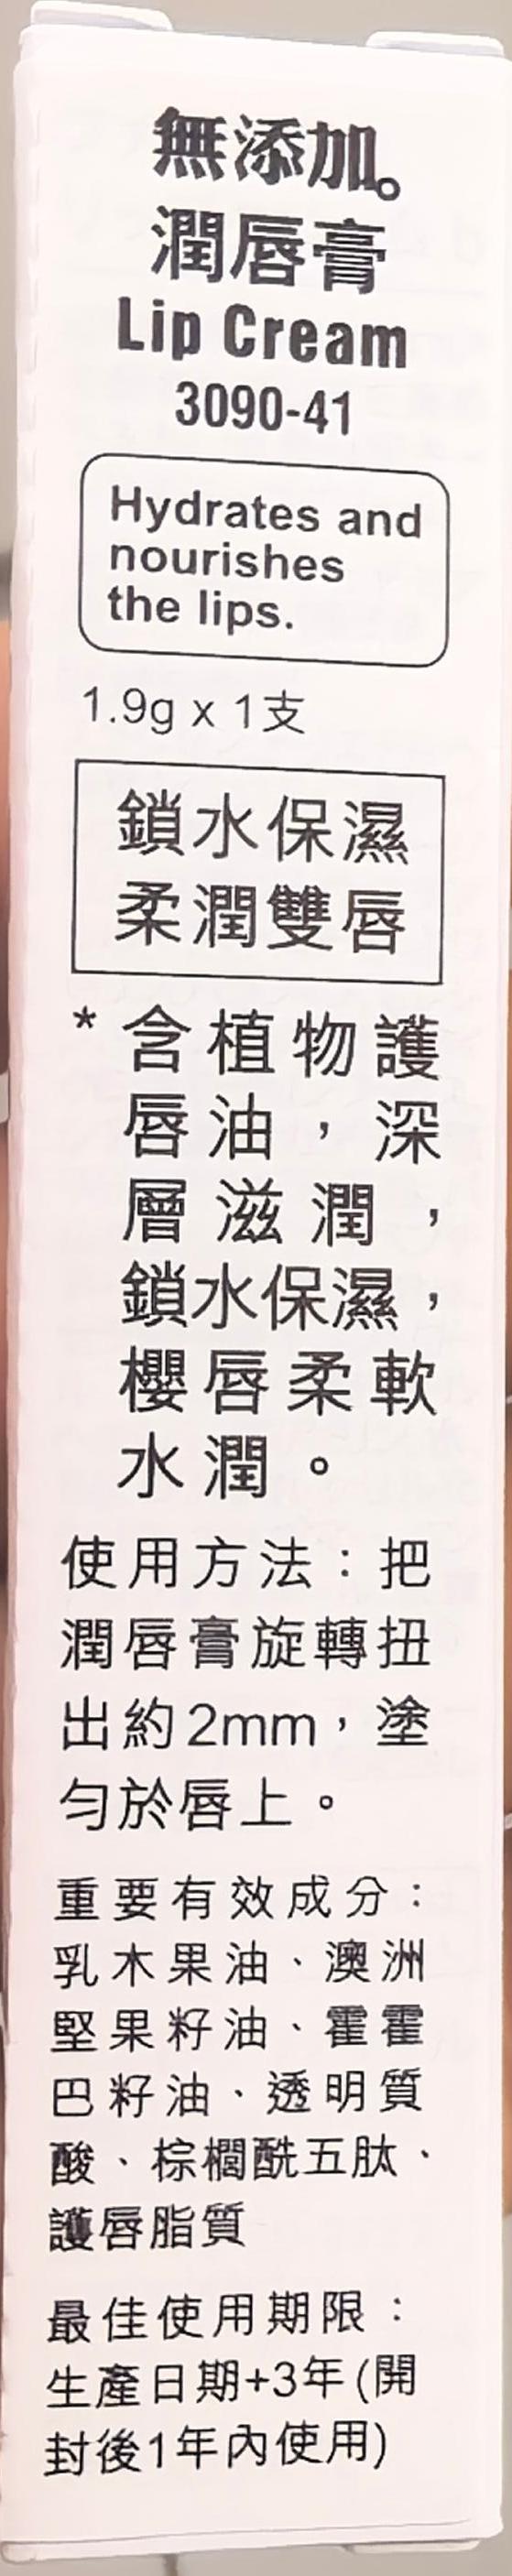 無添加。
潤唇膏
Lip Cream
3090-41
Hydrates and
nourishes
the lips.
1.9g x 1支
鎖水保濕
柔潤雙唇
* 含植物護
唇油，深
層滋潤，
鎖水保濕，
櫻唇柔軟
水潤。
使用方法：把
潤唇膏旋轉扭
出約2mm，塗
勻於唇上。
重要有效成分：
乳木果油、澳洲
堅果籽油、霍霍
巴籽油、透明質
酸、棕櫚酰五肽、
護唇脂質
最佳使用期限：
生產日期+3年(開
封後1年內使用)